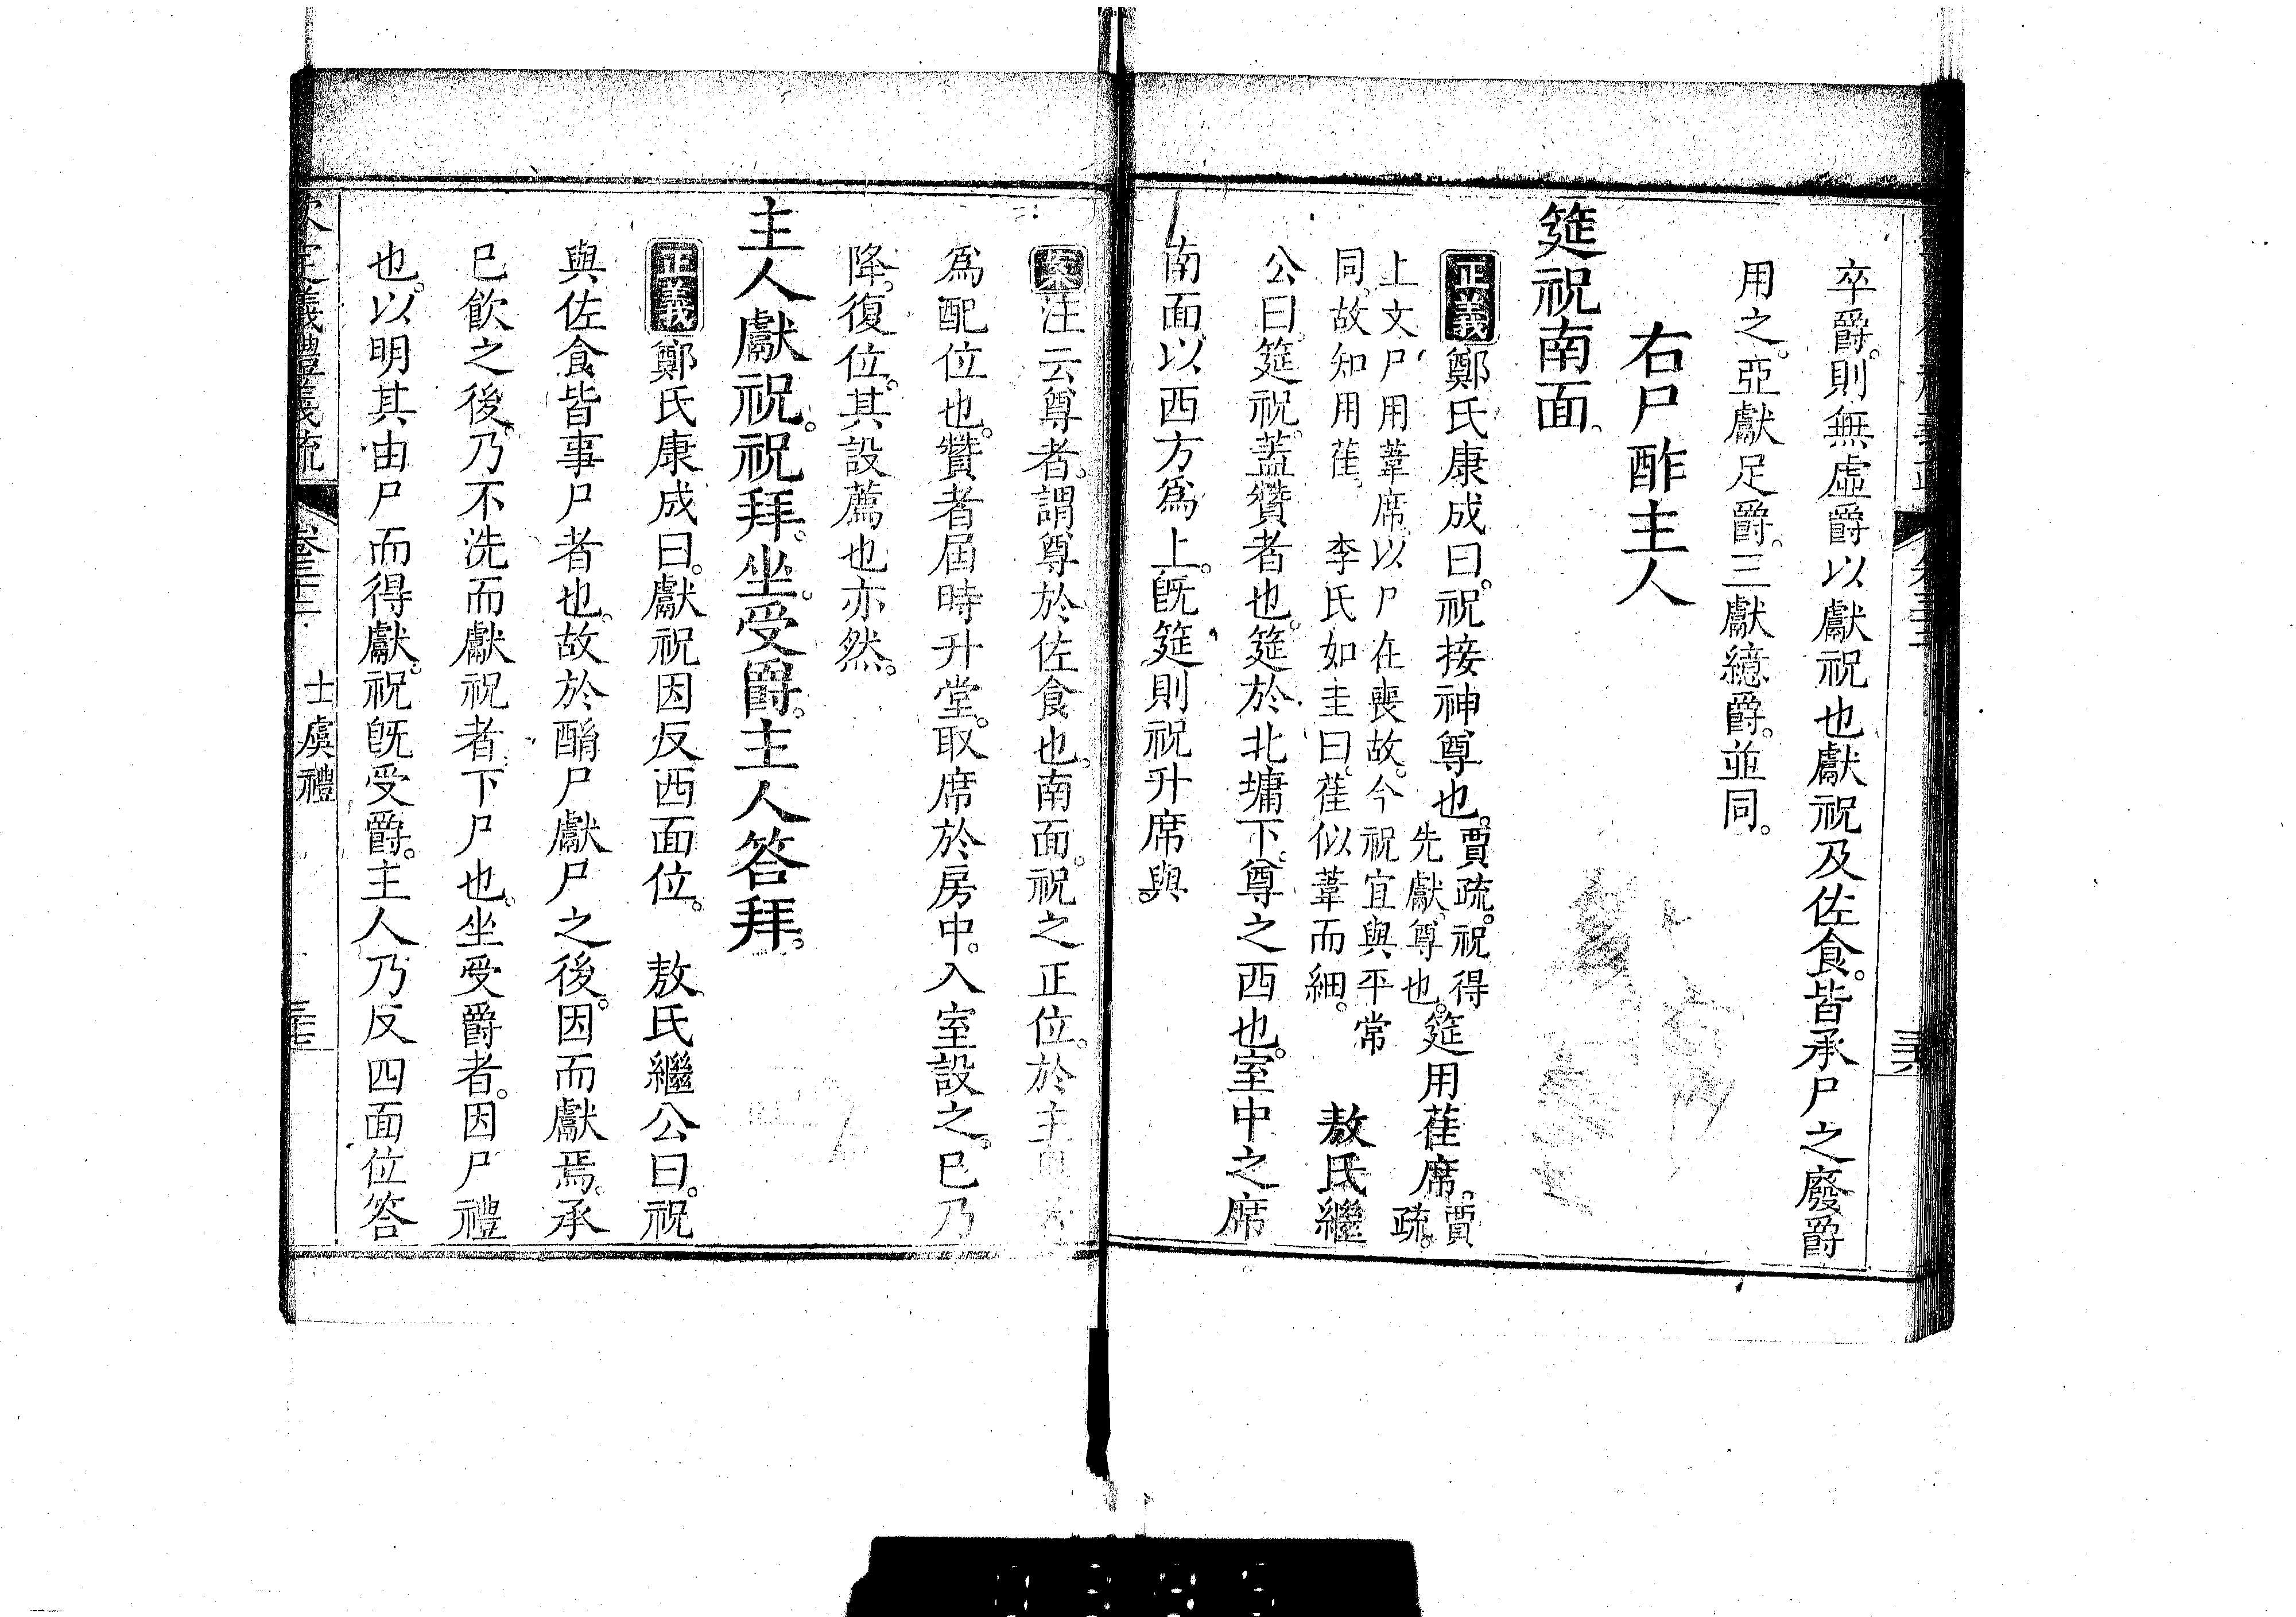 卒爵。則無虛爵以獻祝也獻祝及佐食。皆承尸之廢爵
用之。亞獻足爵。三獻繶爵。並同。
右尸酢主人
筵祝南面
正義鄭氏康成曰。祝接神尊也。賈疏。祝得先獻。尊也。筵用萑席。賈疏。
上文尸用葦席。以尸在喪故。今祝宜與平常
同。故知用萑。 李氏如圭曰。萑似葦而細。 敖氏繼
公曰。筵祝。蓋贊者也。筵於北墉下。尊之西也。室中之席。
南面。以西方爲上。旣筵。則祝升席與。
案注云尊者。謂尊於佐食也。南面。祝之正位。於主
爲配位也。贊者屆時升堂。取席於房中。入室設之。已乃
降。復位。其設薦也亦然。
主人獻祝。祝拜。坐。受爵。主人答拜。
正義鄭氏康成曰。獻祝因反西面位。 敖氏繼公曰。祝
與佐食皆事尸者也。故於酳尸獻尸之後。因而獻焉。承
已飲之後。乃不洗而獻祝者。下尸也。坐受爵者。因尸禮
也。以明其由尸而得獻。祝旣受爵。主人乃反四面位答
欽定儀禮義疏 卷三十三 士虞禮 三七